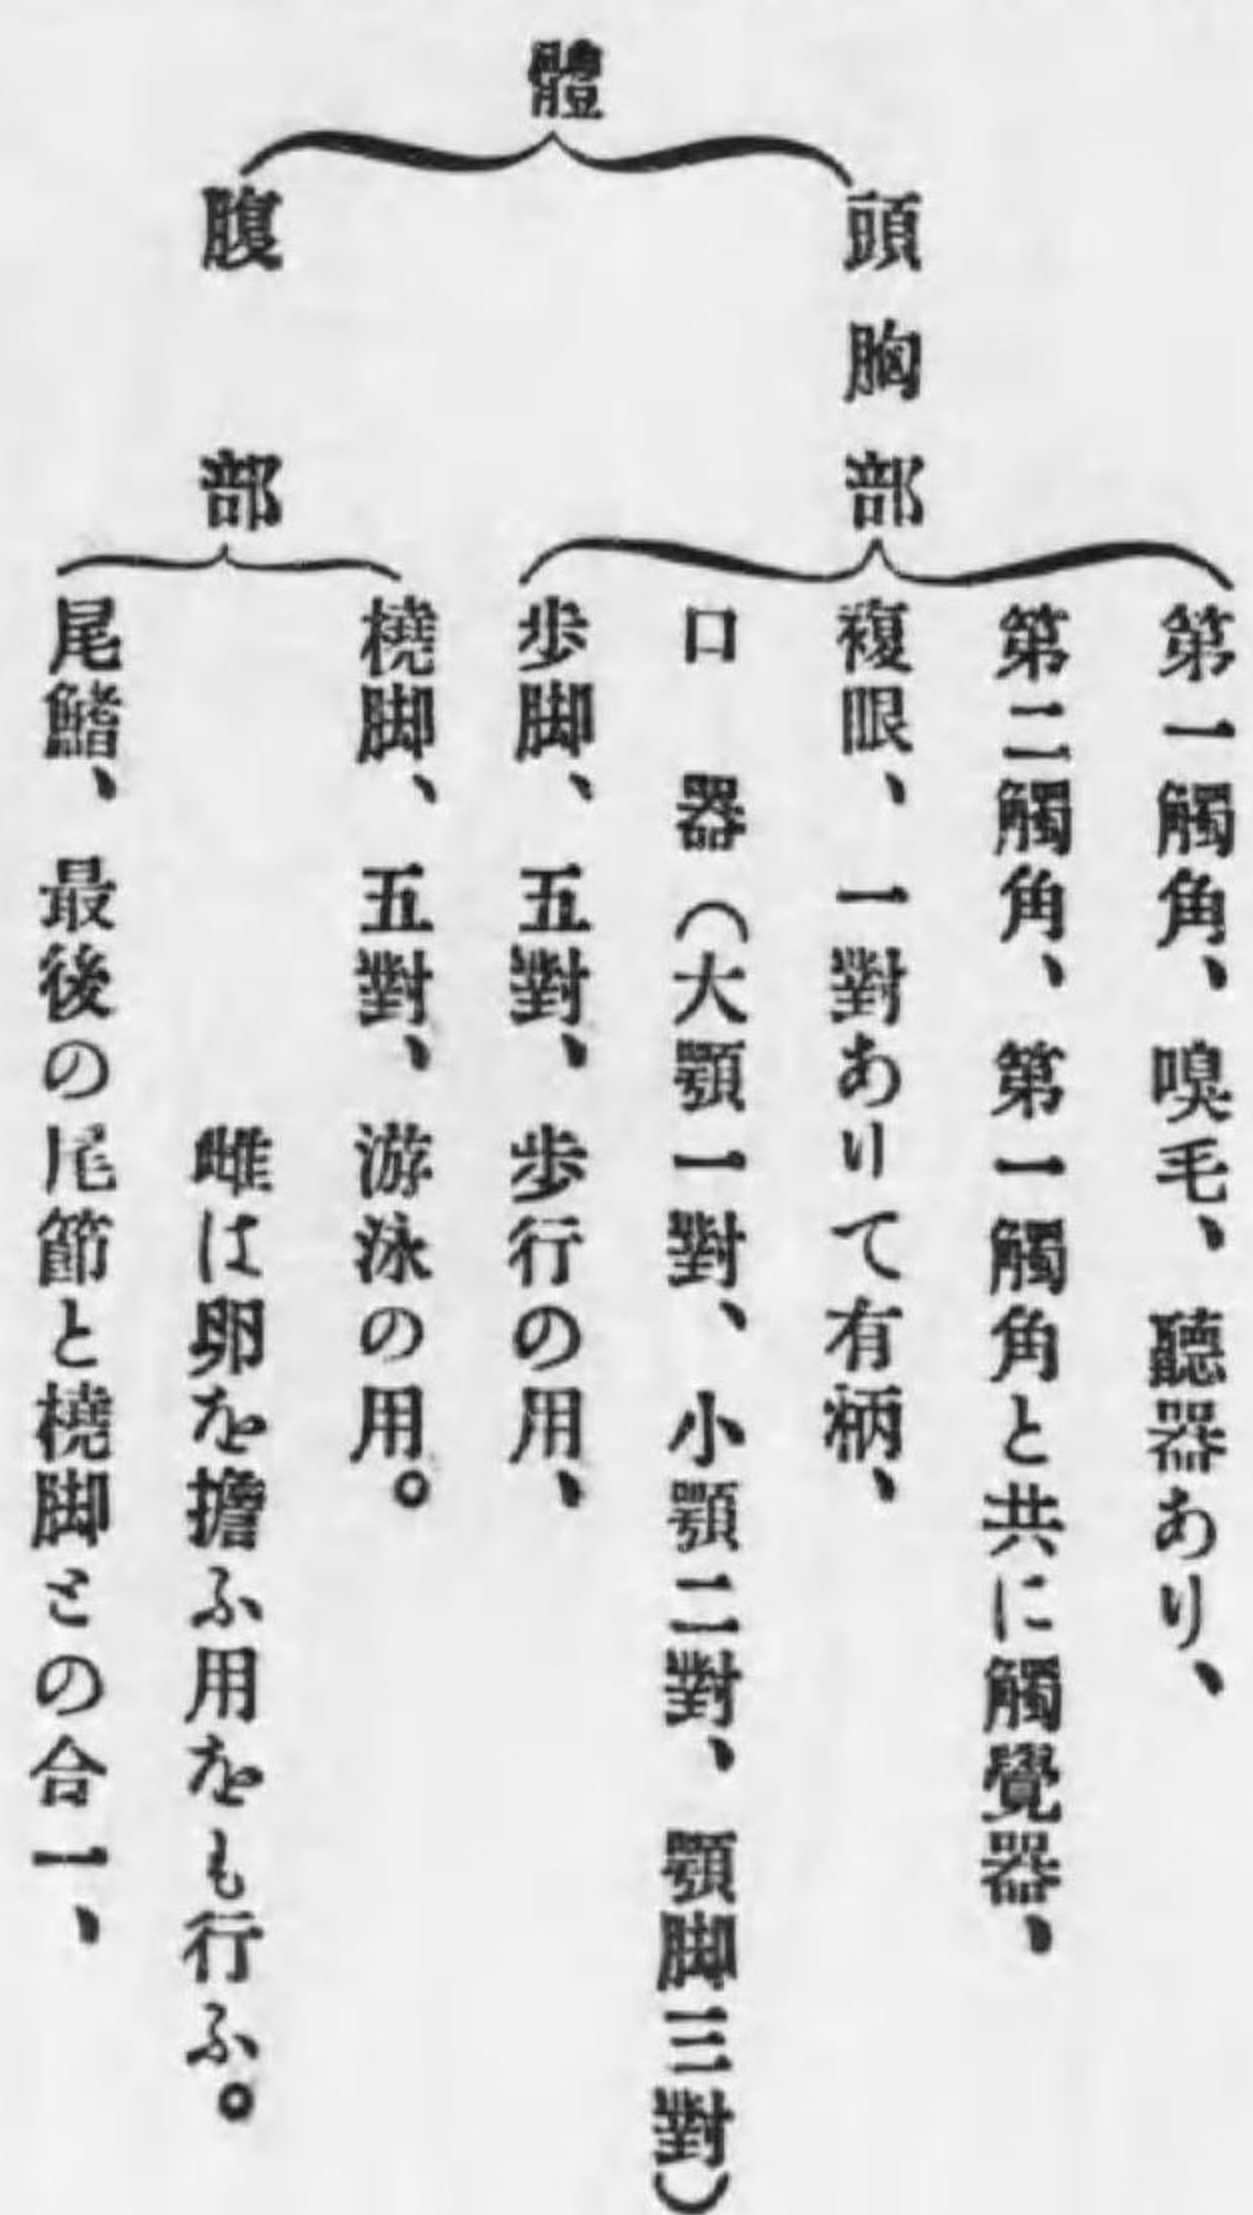 體
頭胸部
第一觸角、嗅毛、聽器あり、
第二觸角、第一觸角と共に觸覺器、
複眼、一對ありて有柄、
口器(大顎一對、小顎二對、顎脚三對)
歩脚、五對、歩行の用、
腹部
橈脚、五對、游泳の用。
雌は卵を擔ふ用をも行ふ。
尾鰭、最後の尾節と橈脚との合一、